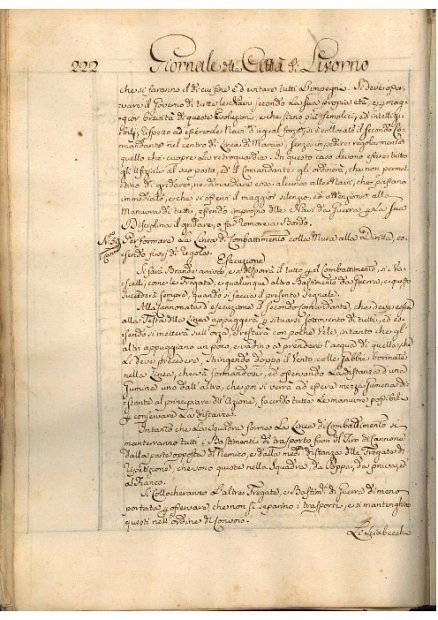 222 Giornale della Città di Livorno
che si faranno il di cui fine è d'evitare tutti l'
il Governo di tutte le Navi secondo la sua proprietà, e p mag-
gior brevità di queste Evoluzioni, che sieno più semplici, ed intelligi-
bili, rispetto ad essere le Navi d'ugual forza, si è collocato il secondo Co-
mandante nel centro di Linea di Marcia, senza impedire regolarmente
quello che cuopre la retroguardia. In questo caso devono essere tutti
gl'Uffiziali al suo posto, ed il Comandante gli ordinerà, che non permet-
tino di gridare, nè dimandare cosa alcuna alle Navi, che passano
immediate, e che s'osservi il maggior silenzio, ed attenzione alla
Manovra di tutti, essendo improprio delle Navi da Guerra, e della sua
Disciplina il gridare, o far romore a Bordo.
Performare la Linea di Combattimento colla Mura alla Diritta, es-
sendo fuori di regola.
Esecuzione
Si farà Branda a ruolo, e si disporrà il tutto p il Combattimento, sì Va-
scelli, come le Fregate, e qualunque altro Bastimento da Guerra, e questo
succederà sempre, quando si faccia il presente Segnale.
Alla Esecuzione il secondo Comandante, che deve essere
alla Testa della Linea si situarsi sottovento di tutti, ed es-
sendo si metterà sull' e resterà con poche Vele, intanto che gl'
altri appoggiano un poco, e vadino a prendere l'acqua di quello, che
li deve precedere, stringendo doppo il Vento, colle gabbie borinate
nella Linea, che và formandosi, ed osservando la distanza d'una
Gumina uno dall'altro, che poi si verrà ad essere mezza Gumena di-
stante al principiare dell'Azione, facendo tutte le manovre possibili
p conservare la distanza.
Intanto che la Squadra forma la Linea di Combattimento si
manterranno tutti i Bastimenti di trasporto fuori del Tiro di Cannone
dalla parte opposta al Nemico, e dalla med: distanza delle Fregate di
Ripetizione, che sono queste nella Squadra, da Poppa, da prova, e
di Fianco.
Si collocheranno l'altre Fregate, e Bastim: di Guerra di meno
portata p osservare che non si separino i trasporti, e si mantenghino
questi nell'ordine di Convoio.
Li Sciabecchi